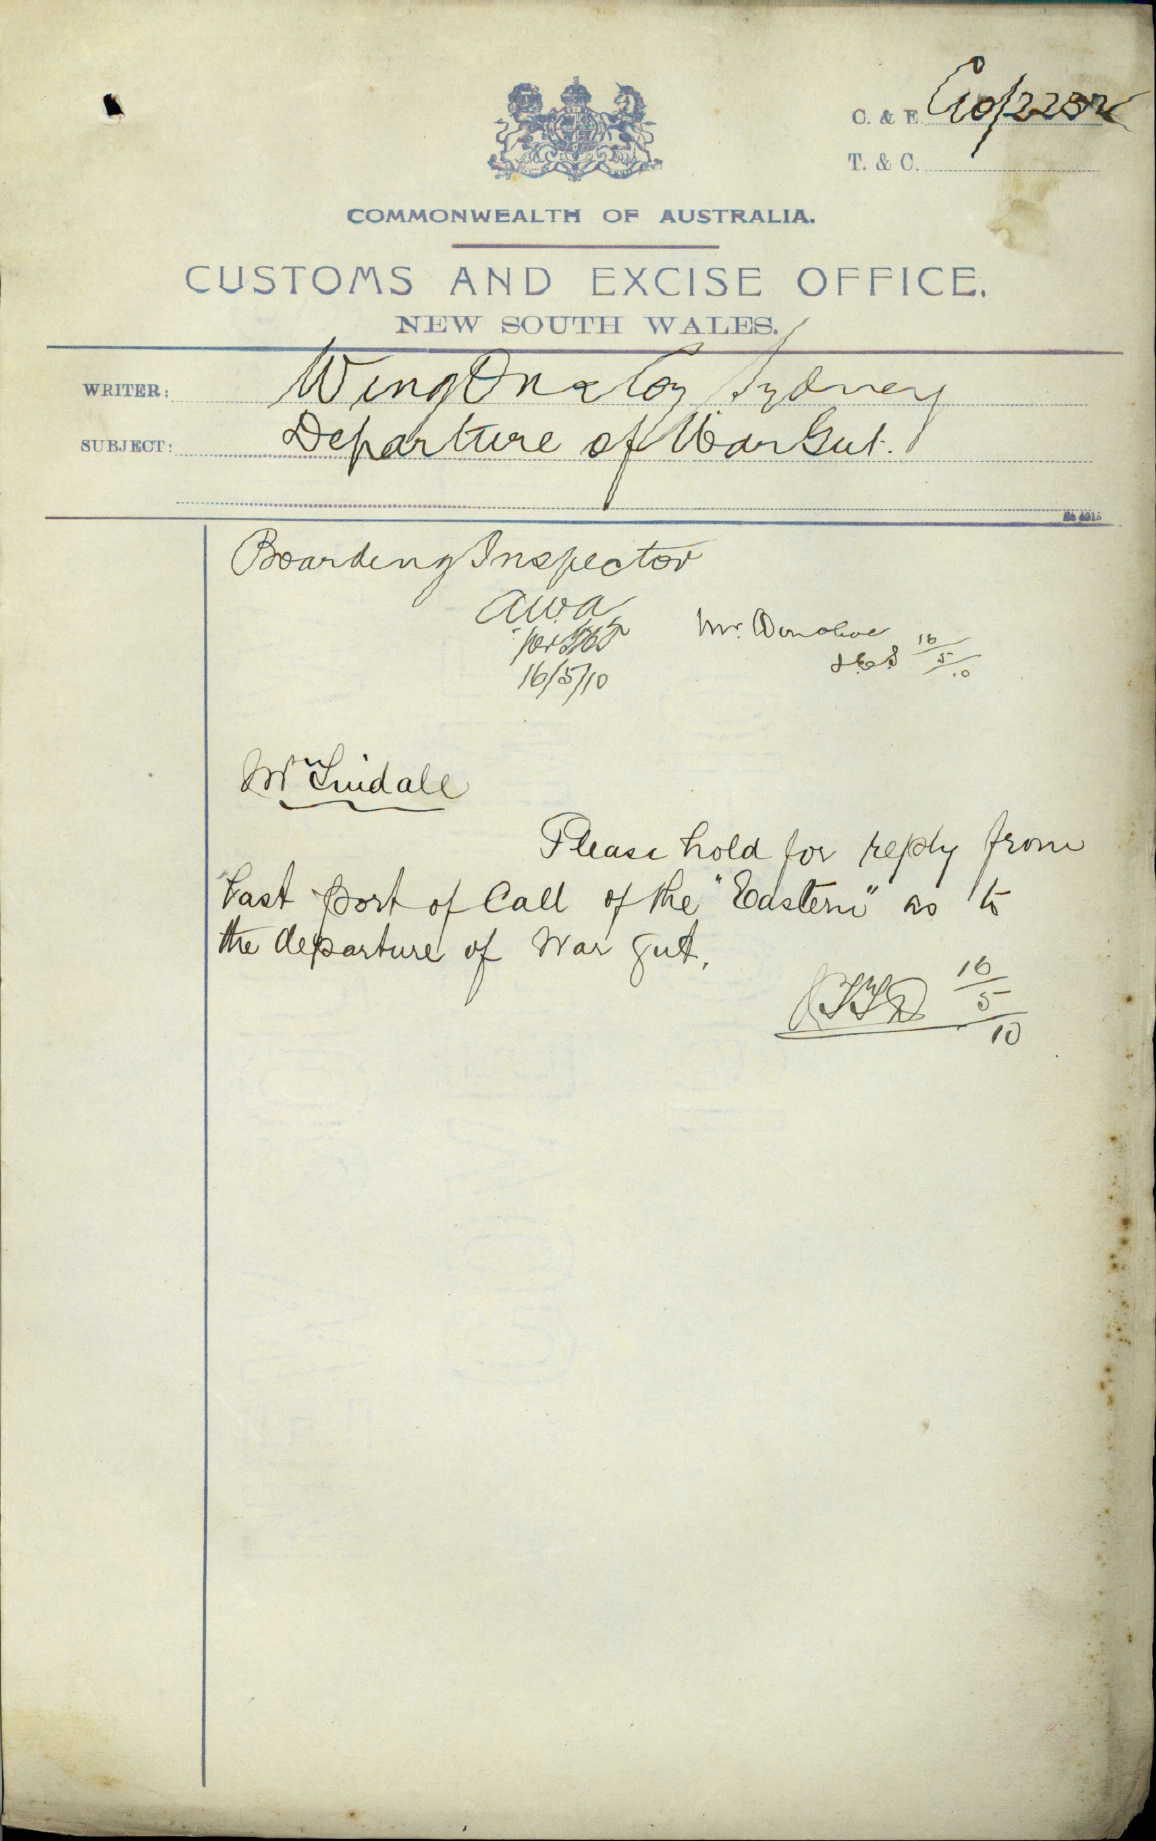 C. & E. C10/2232
T. & C.
COMMONWEALTH OF AUSTRALIA.
CUSTOMS AND EXCISE OFFICE.
NEW SOUTH WALES.
WRITER: Wing On & Coy Sydney
SUBJECT: Departure of War Gut.
Boarding Inspector
A.W.A
per
16/5/10
Mr. Donohoe
16/5/10
Mr Tindale
Please hold for reply from
Last port of Call of the "Eastern" as to
the departure of War gut.
16/5/10